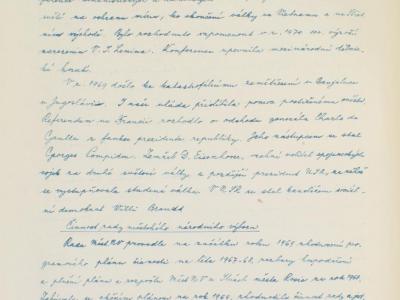 mítí na obranu míru, ke skončení války ve Vietnamu a na Blíz
kém východě. Bylo rozhodnuto vzpomenout v r. 1970 100. výročí
narození V. I. Lenina. Konference upevnila mezinárodní dělnic
ké hnutí.
V r. 1969 došlo ke katastrofálnímu zemětřesení v Banjaluce
v Jugoslávii. I naše vláda přislíbila pomoc postiženému městu.
Referendum ve Francii rozhodlo o odchodu generála Charla de
Gaulla z funkce presidenta republiky. Jeho nástupcem se stal
Georges Pompidou. Zemřel D. Eisenhower, velitel spojeneckých
vojsk za druhé světové války a pozdější president USA, za něhož
se vystupňovala studená válka. V NSR se stal kancléřem sociál
ní demokrat Willi Brandt.
Činnost rady městského národního výboru
Rada MěstNV provedla na začátku roku 1969 zhodnocení pro
gramového plánu činnosti na léta 1967-68, rozbory hospodaření
a plnění plánu a rozpočtu MěstNV a
města
na rok 1968.